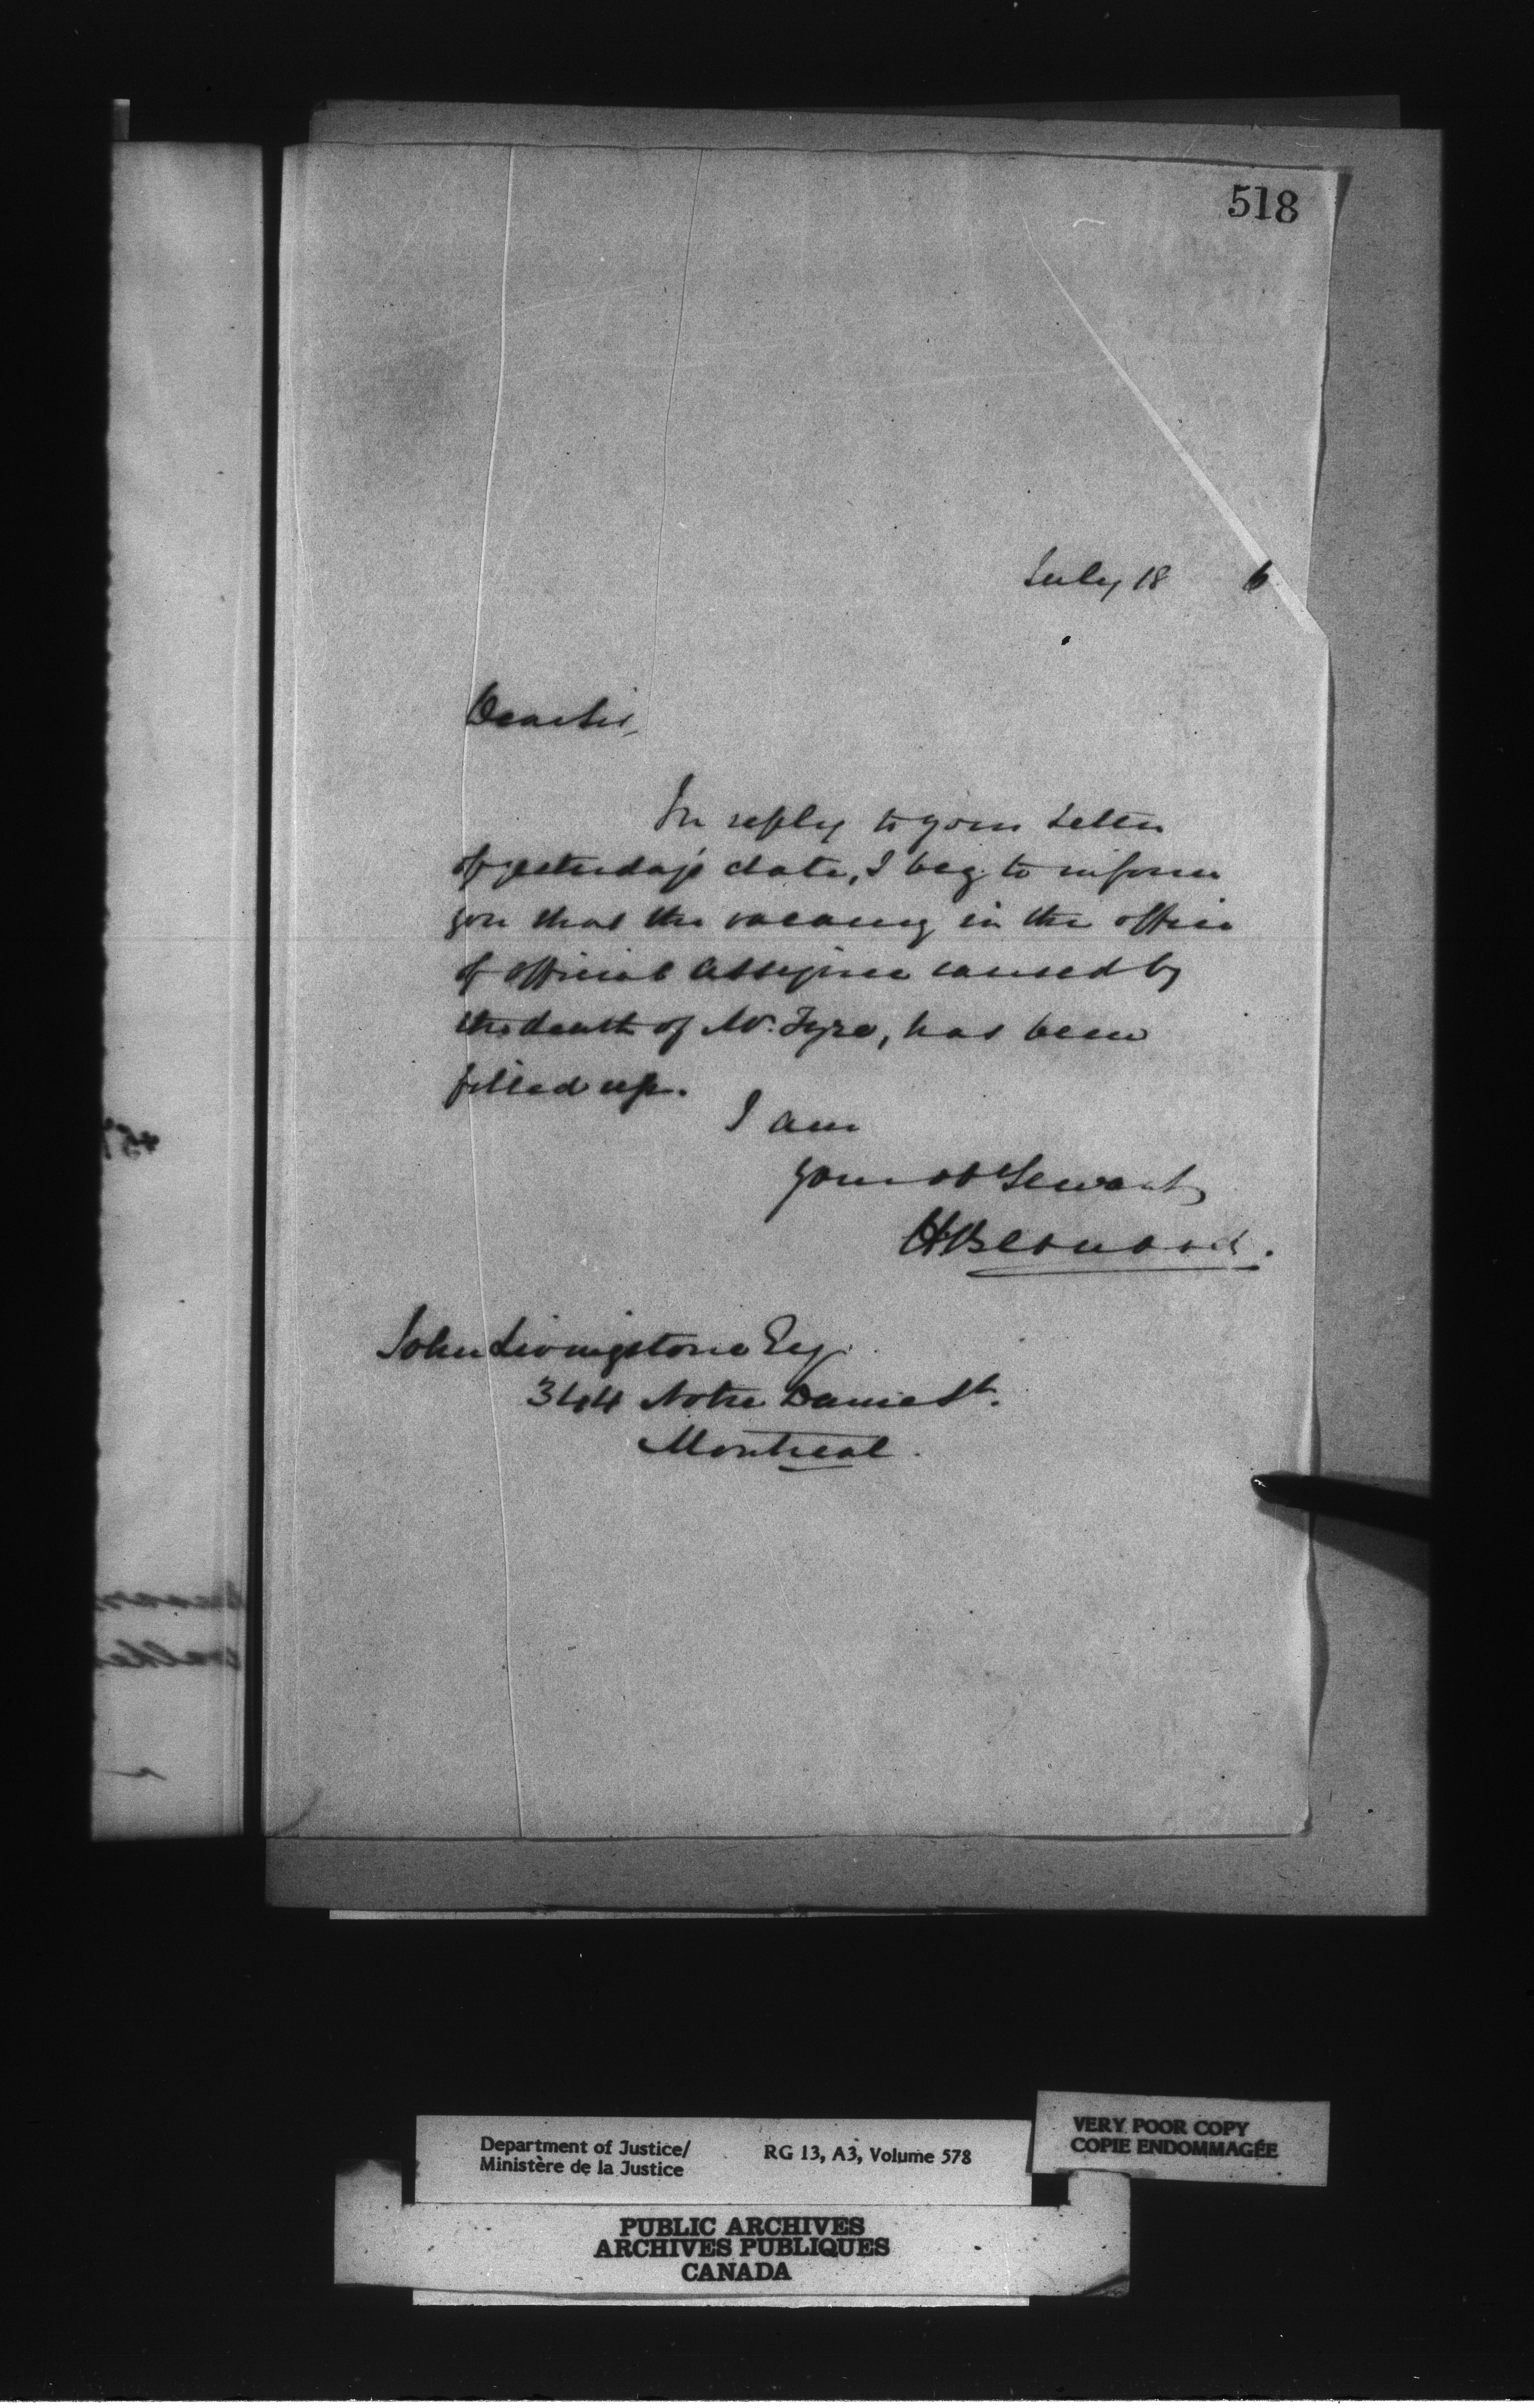 518
July 18 6
Dear Sir,
In reply to your letter
of yesterday's date, I beg to inform
you that the vacancy in the office
of official assignee caused by
the death of Mr. Tyre, has been
filled up.
I am
Your ob Servant
H Bernard.
John Livingstone Esq.
344 Notre Dame St.
Montreal.
Department of Justice/
Ministère de la Justice
RG 13, A3, Volume 578
VERY POOR COPY
COPIE ENDOMMAGÉE
PUBLIC ARCHIVES
ARCHIVES PUBLIQUES
CANADA